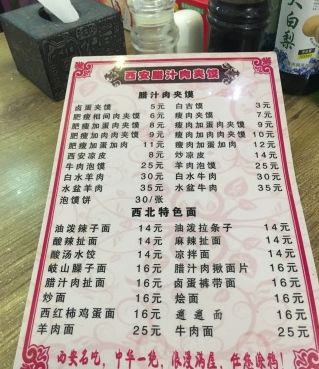 大白梨
西安腊汁肉夹馍
腊汁肉夹馍
卤蛋夹馍 5元 白吉馍 3元
肥瘦相间肉夹馍 6元 瘦肉夹馍 7元
肥瘦加蛋肉夹馍 8元 瘦肉加蛋肉夹馍 9元
肥瘦加肉肉夹馍 9元 瘦肉加肉肉夹馍 10元
肥瘦加蛋加肉 11元 瘦肉加蛋加肉 12元
西安凉皮 8元 炒凉皮 14元
牛肉泡馍 25元 羊肉泡馍 25元
白水羊肉 30元 白水牛肉 30元
水盆羊肉 35元 水盆牛肉 35元
泡馍饼 30/张
西北特色面
油泼辣子面 14元 油泼拉条子 14元
酸辣扯面 14元 麻辣扯面 14元
酸汤水饺 14元 凉拌面 14元
岐山臊子面 16元 腊汁肉揪面片 16元
腊汁肉扯面 16元 卤蛋裤带面 16元
炒面 16元 烩面 16元
西红柿鸡蛋面 16元 面 16元
羊肉面 25元 牛肉面 25元
西安名吃，中华一绝，浪漫满屋，任您喜赐！